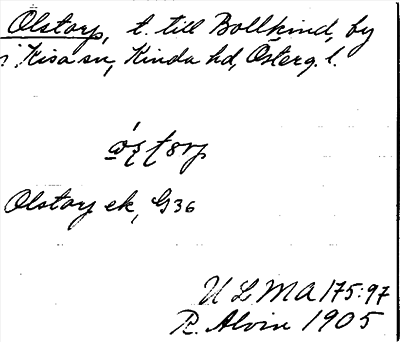 Olstorp, t. till Bollkind, by
i Kisa sn, Kinda hd, Österg. l.
Olstorp ek, G36
ULMA 175:97
R. Alvin 1905